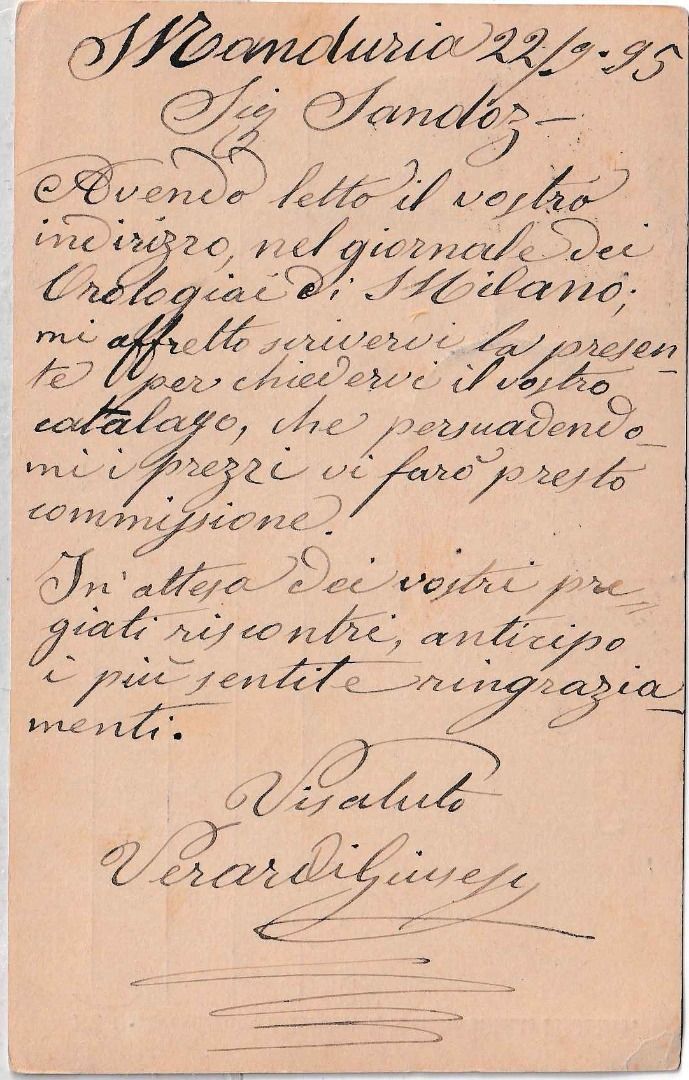 Manduria 22/9-95
Sig Sandoz -
Avendo letto il vostro
indirizzo, nel giornale dei
Orologiai di Milano;
mi affretto scrivervi la presen-
te per chiedervi il vostro
catalago, che persuadendo-
mi i prezzi vi farò presto
commissione.
In attesa dei vostri pre-
giati riscontri, anticipo
i più sentite ringrazia-
menti.
Vi saluto
Verardi Giusep